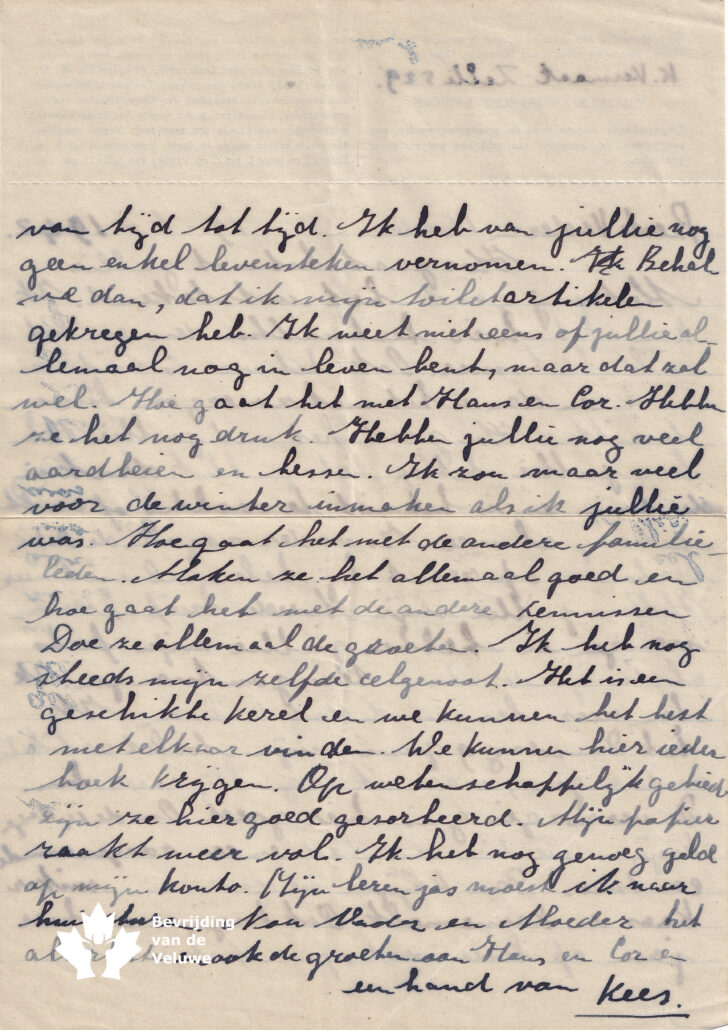 K. Vermaat Zelle 529.
van tijd tot tijd. Ik heb van jullie nog
geen enkel levensteken vernomen. Ik Behal
ve dan, dat ik mijn toiletartikelen
gekregen heb. Ik weet niet eens of jullie al-
lemaal nog in leven bent, maar dat zal
wel. Hoe gaat het met Hans en Cor. Hebben
ze het nog druk. Hebben jullie nog veel
aardbeien en bessen. Ik zou maar veel
voor de winter inmaken als ik jullie
was. Hoe gaat het met de andere familie
leden. Maken ze het allemaal goed en
hoe gaat het met de andere kennissen
Doe ze allemaal de groeten. Ik heb nog
steeds mijn zelfde celgenoot. Het is een
geschikte kerel en we kunnen het best
met elkaar vinden. We kunnen hier ieder
boek krijgen. Op wetenschappelijk gebied
zijn ze hier goed gesorteerd. Mijn papier
raakt weer vol. Ik heb nog genoeg geld
op mijn konto. Mijn leren jas moest ik naar
Nou Vader en Moeder het
ook de groeten aan Hans en Cor en
een hand van Kees.
Bevrijding
van de
Veluwe